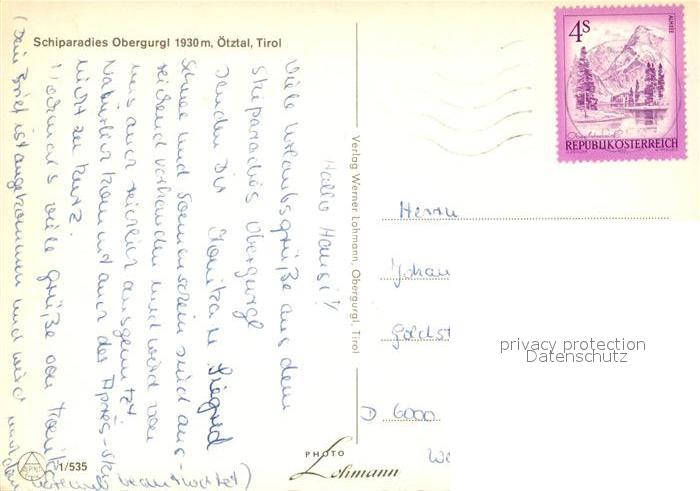 Schiparadies Obergurgl 1930 m, Ötztal, Tirol
Hallo Hansi!
Viele Urlaubsgrüße aus dem
Skiparadies Obergurgl
senden Dir Monika u. Siegrid
Schnee und Sonnenschein sind aus-
reichend vorhanden und wird von
uns auch reichlich ausgenutzt
Natürlich kommt auch der Après-Ski
nicht zu kurz.
Nochmals viele Grüße von
(Dein Brief ist angekommen und wird
beantwortet)
1/535
Verlag Werner Lohmann, Obergurgl, Tirol
PHOTO
Lohmann
4S
ALMSEE
REPUBLIKÖSTERREICH
Herrn
Johan
Goldst
D 6000
privacy protection
Datenschutz